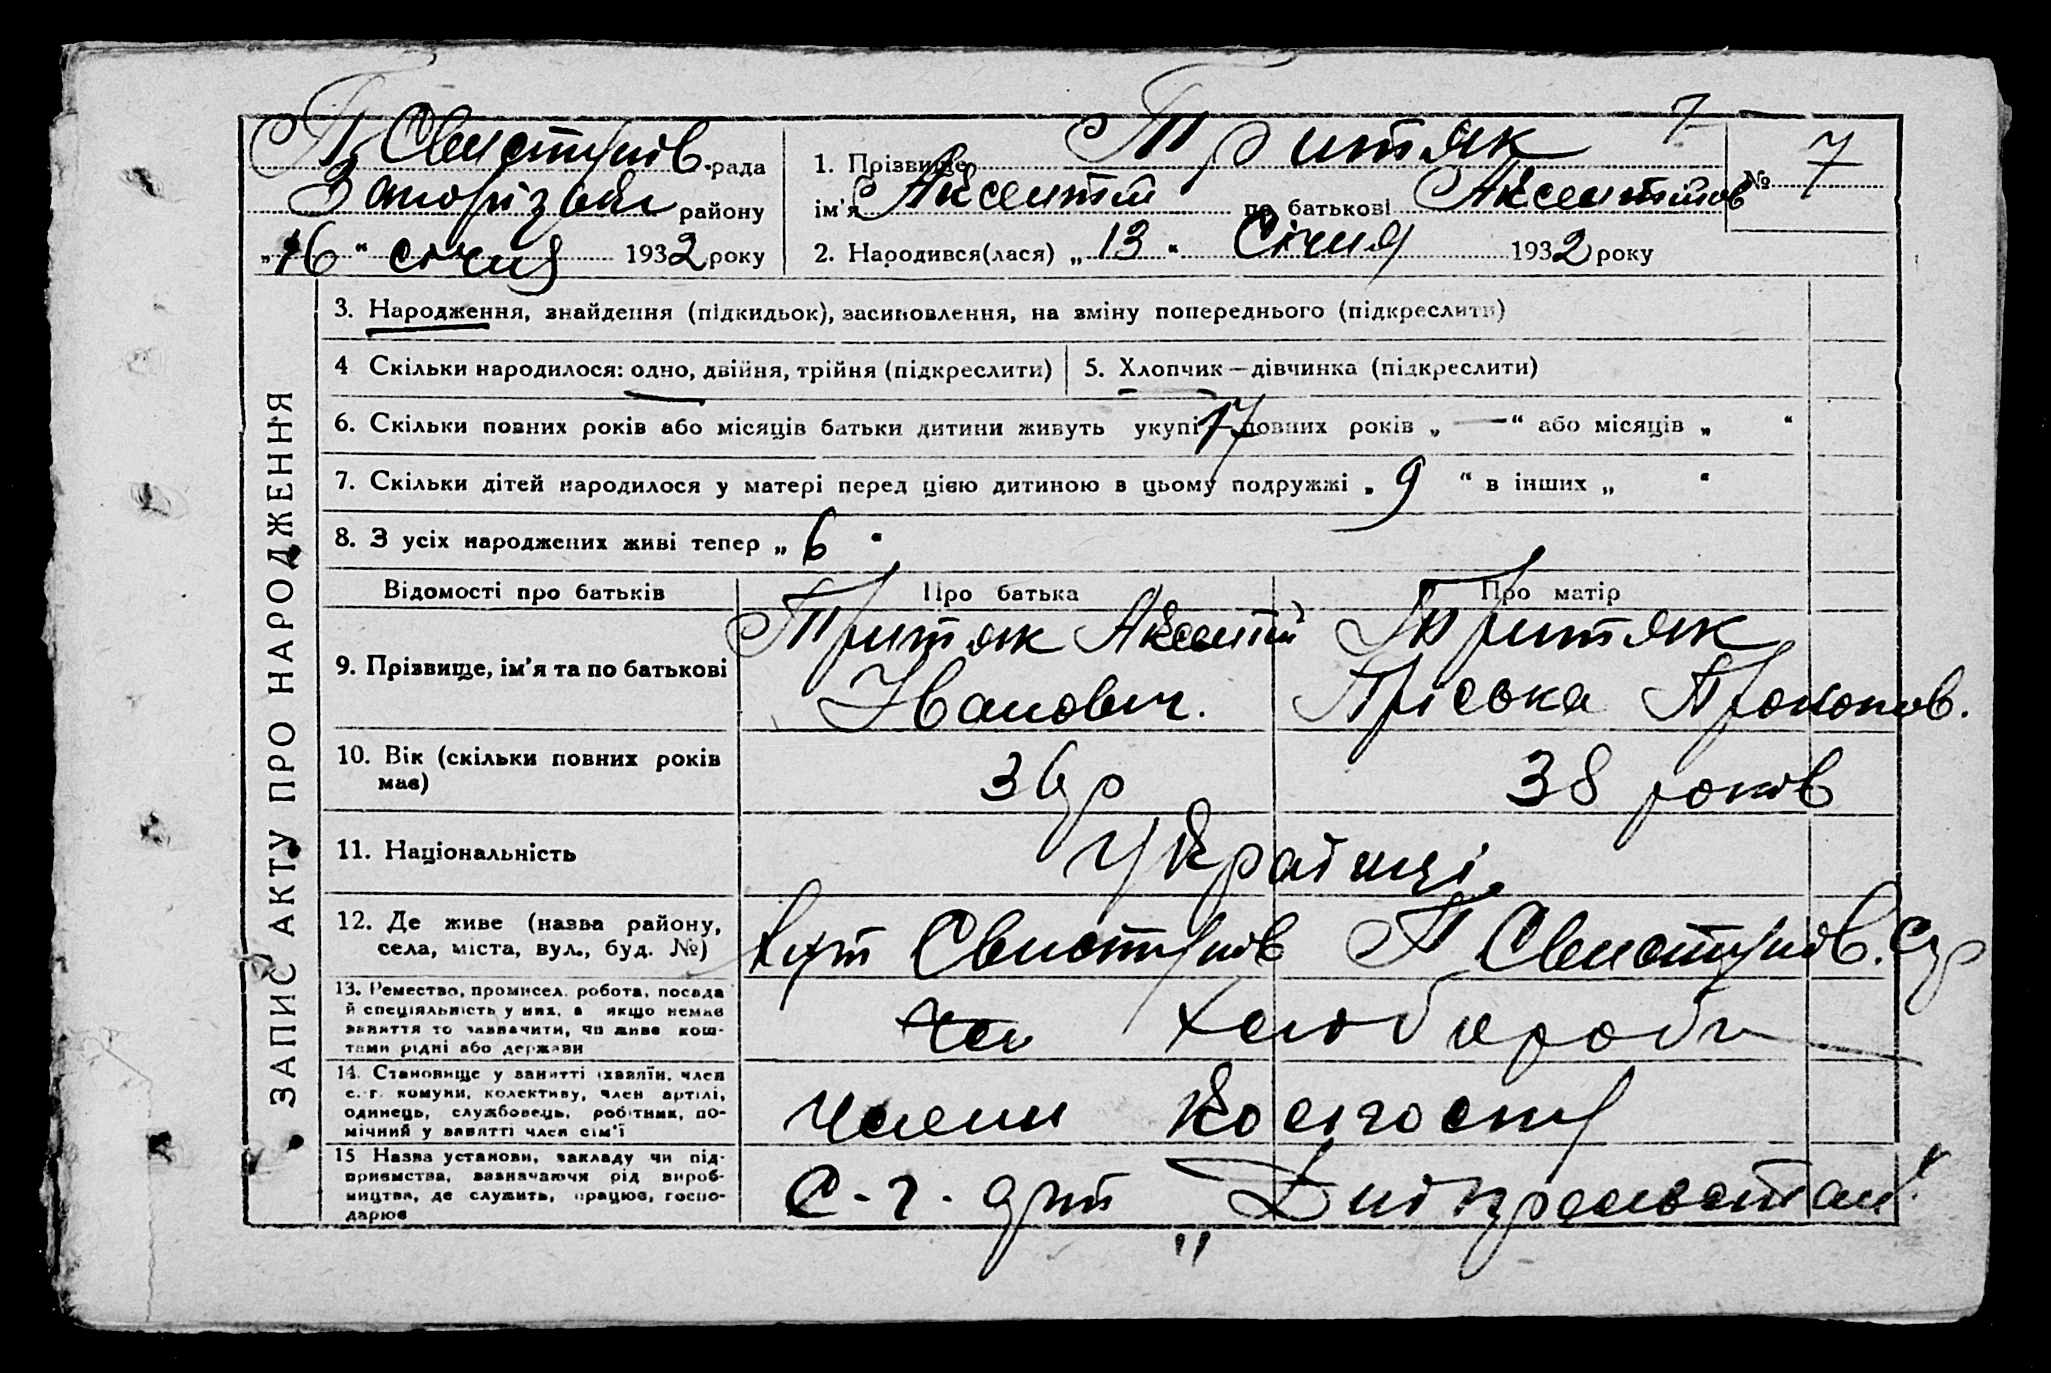 П Свистунов. рада
Запорізьк району
„16“ січня 1932 року
1. Прізвище Притяк 7
ім'я Аксентій по батькові Аксентійов
№ 7
2. Народився(лася) „13“ Січня 1932 року
ЗАПИС АКТУ ПРО НАРОДЖЕННЯ
3. Народження, знайдення (підкидьок), засиновлення, на зміну попереднього (підкреслити)
4 Скільки народилося: одно, двійня, трійня (підкреслити) 5. Хлопчик—дівчинка (підкреслити)
6. Скільки повних років або місяців батьки дитини живуть укупі 17 повних років „ — “ або місяців „ “
7. Скільки дітей народилося у матері перед цією дитиною в цьому подружжі „ 9 “ в інших „ “
8. З усіх народжених живі тепер „ 6 “
Відомості про батьків Про батька Про матір
9. Прізвище, ім'я та по батькові
Притяк Аксентій
Іванович.
Притяк
Пріська Прокопов.
10. Вік (скільки повних років
має)
36 р
38 років
11. Національність
Українці
12. Де живе (назва району,
села, міста, вул., буд. №)
Хут Свистунів П Свистунів. с/р
13. Ремество, промисел, робота, посада
й спеціяльність у них, а якщо немає
заняття то зазначити, чи живе кош-
тами рідні або держави
Хлібороби
14. Становище у занятті (хазяїн, член
с.-г. комуни, колективу, член артілі,
одинець, службовець, робітник, по-
мічний у занятті член сім'ї
члени колгоспу
15 Назва установи, закладу чи під-
приємства, зазначаючи рід вироб-
ництва, де служить, працює, госпо-
дарює
С.-г. арт